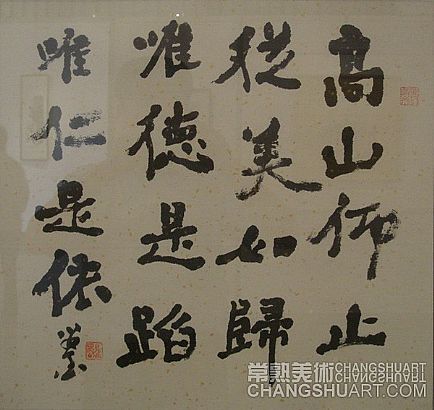 高山仰止
從美如歸
唯德是蹈
唯仁是依
常熟美術 CHANGSHUART
CHANGSHUART.COM